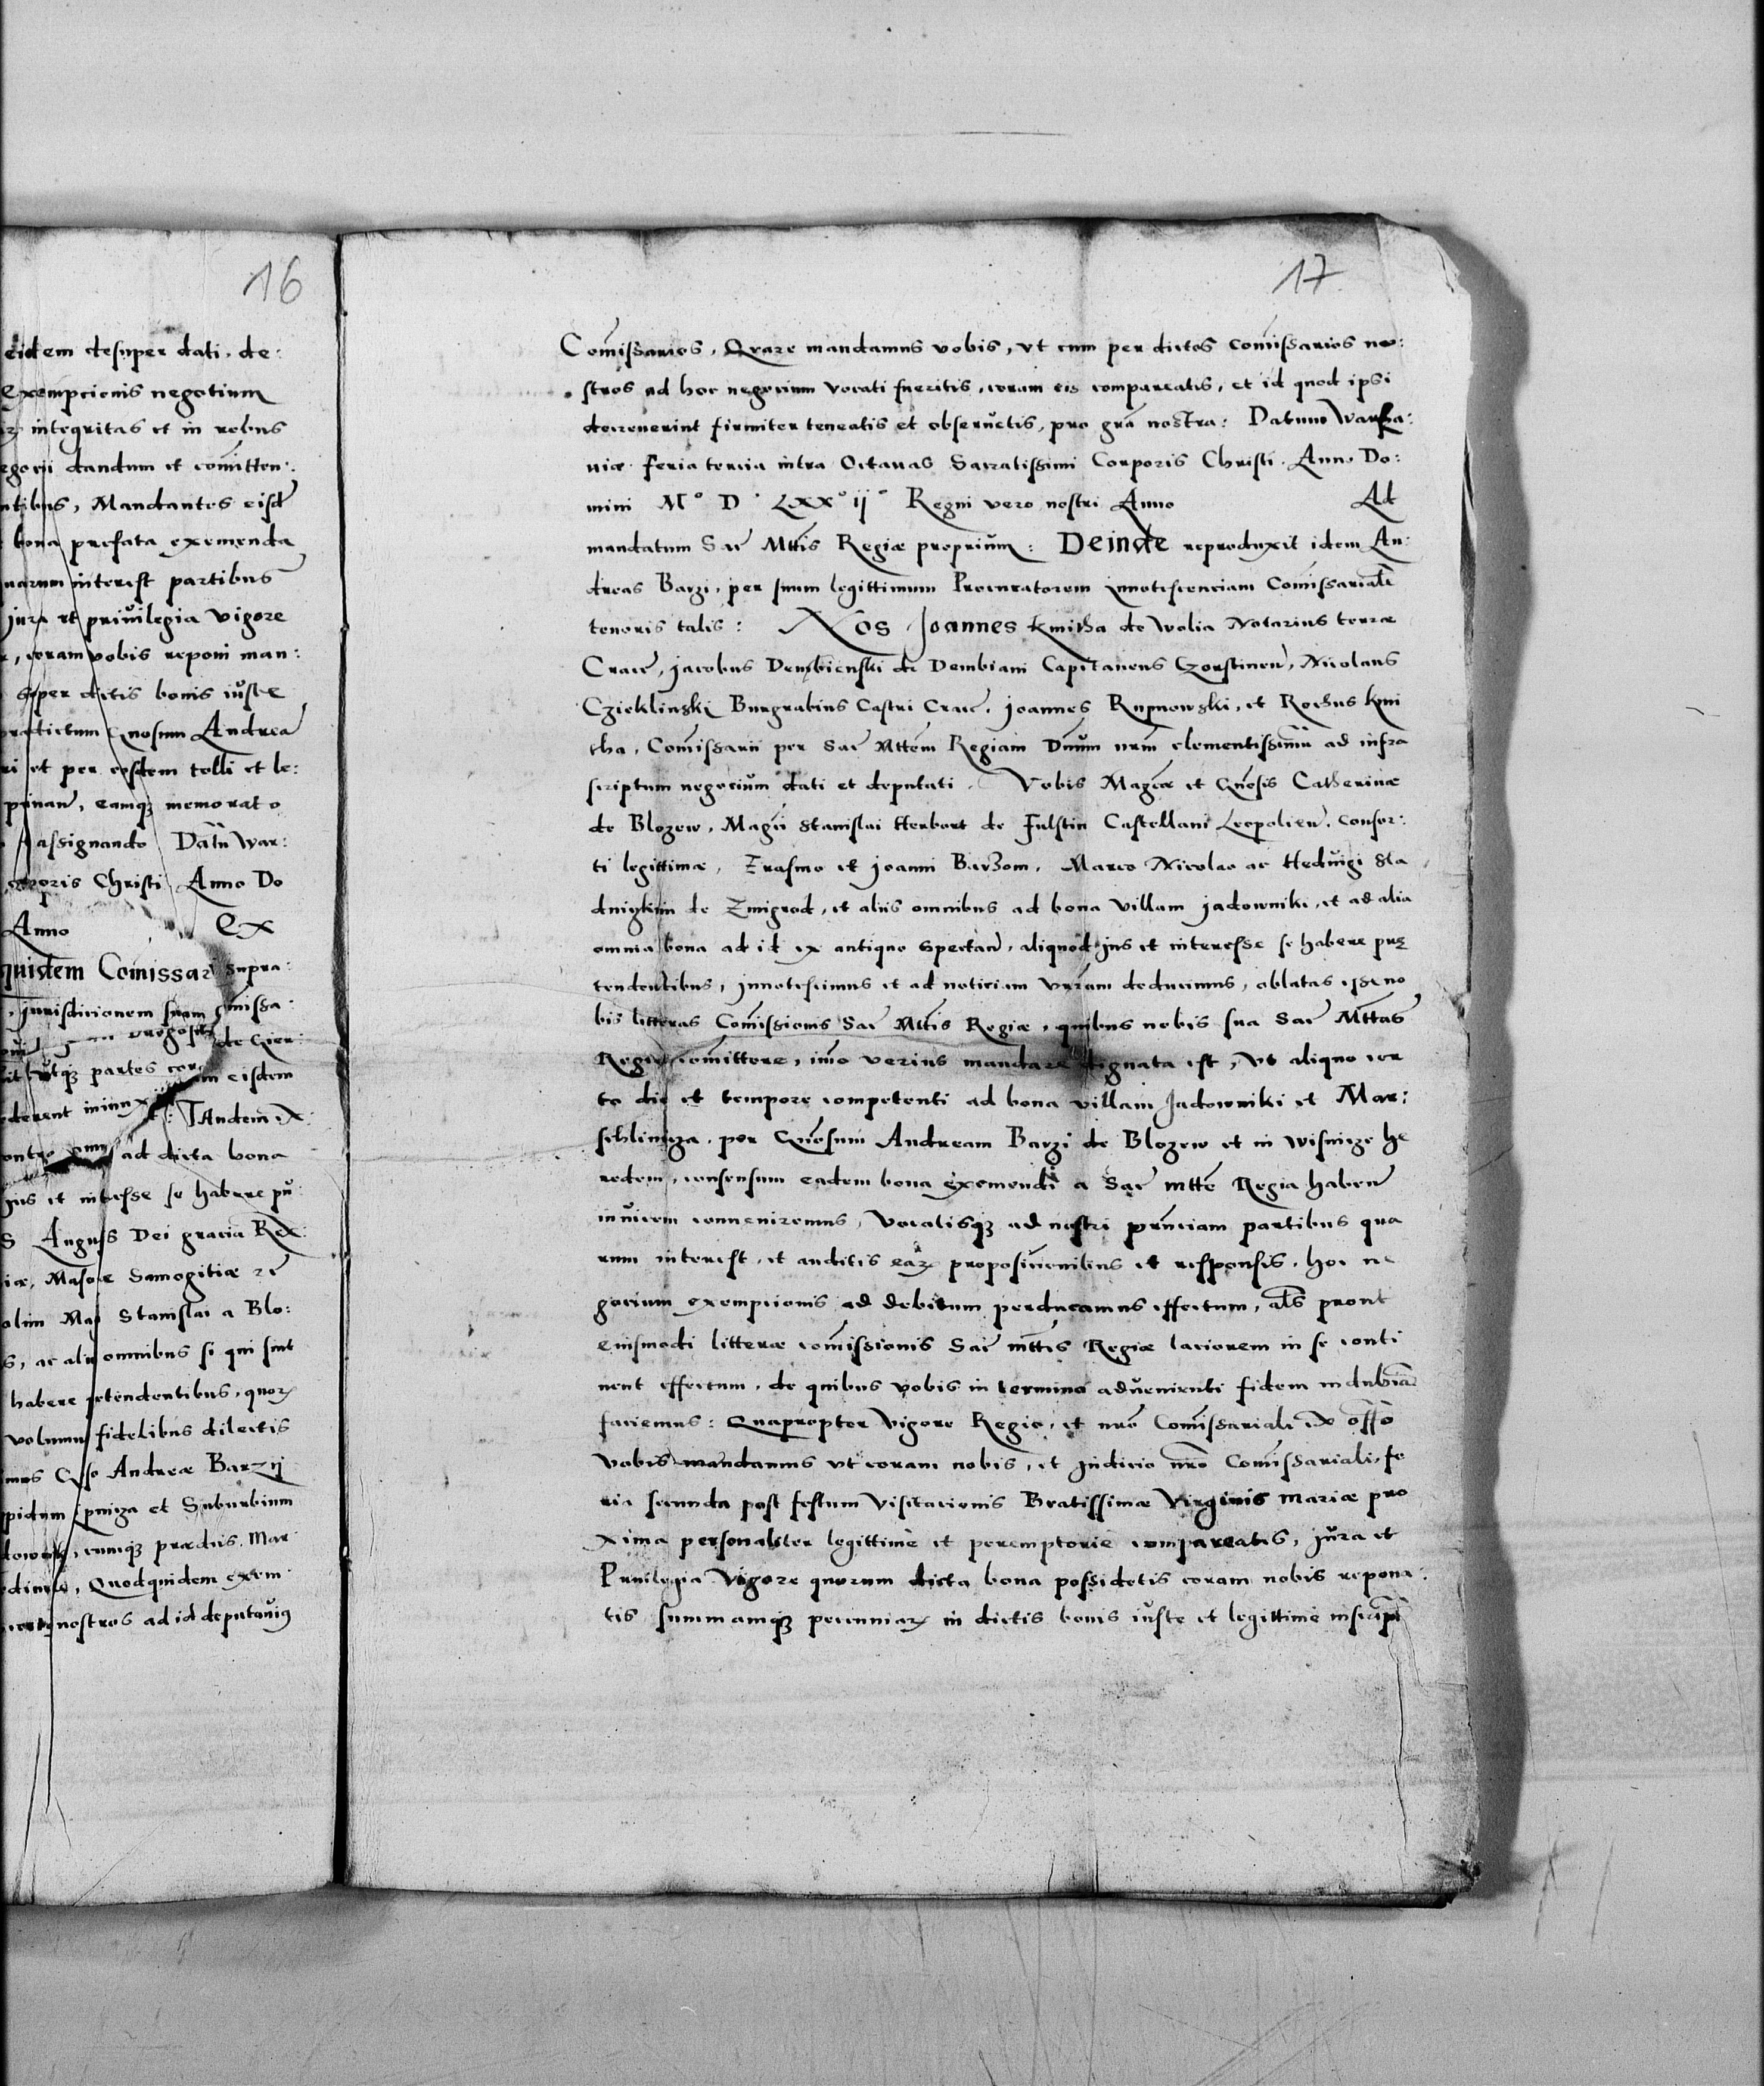 16
eidem desuper dati, de:
Exempcionis negotium
integritas et in rebus
dandum et comitten:
Mandantes eisd
bona prefata exemenda
interest partibus
jura et privilegia vigore
coram vobis reponi man:
super dictis bonis iuste
Gnosum Andrea
et per eosdem tolli et le:
eamq memorato
assignando Datn War:
Christi Anno Do
Anno Ex
quidem Comissar supra:
jurisdicionem suam
de
partes
Tandem ex
ad dicta bona
jus et interesse se habere
Augus Dei gracia Rex
Samogitiæ
olim Stanislai a Blo:
ac aliis omnibus si qui sint
habere quor
volumus fidelibus dilectis
Andreæ Barzij
et Suburbium
cumq prædiis Mar
Quodquidem exem
nostros ad id
17
Comissarios, Quare mandamus vobis, vt cum per dictos comissarios no:
stros ad hoc negocium vocati fueritis, coram eis compareatis, et id quod ipsi
decreuerint firmiter teneatis et obseruetis, pro gra nostra: Datum Warsa:
uiæ feria tercia intra Octauas Sacratissimi Corporis Christi Anno Do:
mini Mº D LXXº ijº Regni vero nostri Anno Ad
mandatum Sac Mttis Regiæ proprium: Deinde reproduxit idem An:
dreas Barzi, per suum legittimum Procuratorem Innotescenciam Comissariale
tenoris talis: Nos Joannes Kmitha de Wolia Notarius terræ
Crac, Jacobus Dembienski de Dembiani Capitaneus Chorstinen, Nicolaus
Czieklinski Burgrabius Castri Crac, Joannes Rupnowski, et Rochus Kmi
tha, Comissarii per Sac Mttem Regiam Dnum nrm clementissimu ad infra
scriptum negocium dati et deputati. Vobis Magcæ et Gnosis Catherinæ
de Blozew, Magci Stanislai Herbort de Fulstin Castellani Leopolien, consor:
ti legittimæ, Erasmo et Joanni Barzom, Marco Nicolao ac Heduigi Sta
dniczkim de Zmigrod, et aliis omnibus ad bona villam Jadowniki, et ad alia
omnia bona ad id ex antiquo spectan, aliquod jus et interesse se habere præ
tendentibus, Innotescimus et ad noticiam vrãm deducimus, oblatas esse no
bis litteras Comissionis Sac Mttis Regiæ, quibus nobis sua Sac Mttas
Regia comittere, imo verius mandare dignata est, Vt aliquo cer
to die et tempore competenti ad bona villam Jadowniki et Mar:
schlinyza, per Gnosum Andream Barzi de Blozew et in Wisnicze he
redem, consensum eadem bona exemendi a Sac mtte Regia haben
inuicem conueniremus, Vocatisq ad nostri prnciam partibus qua
rum interest, et auditis ear proposicionibus et responsis, hoc ne
gocium exempcionis ad debitum perducamus effectum, als prout
eiusmodi litteræ comissionis Sac mttis Regiæ laciorem in se conti
nent effectum, de quibus vobis in termino aduenienti fidem indubia
faciemus: Quapropter Vigore Regio, et nro Comissariali ex offo
vobis mandamus vt coram nobis, et Judicio nro Comissariali, fe
ria secunda post festum Visitacionis Beatissimæ Virginis Mariæ pro
xima personaliter legittime et peremptorie compareatis, Jura et
Priuilegia Vigore quorum dicta bona possidetis coram nobis repona:
tis summamq pecuniar in dictis bonis iuste et legittime inscripta